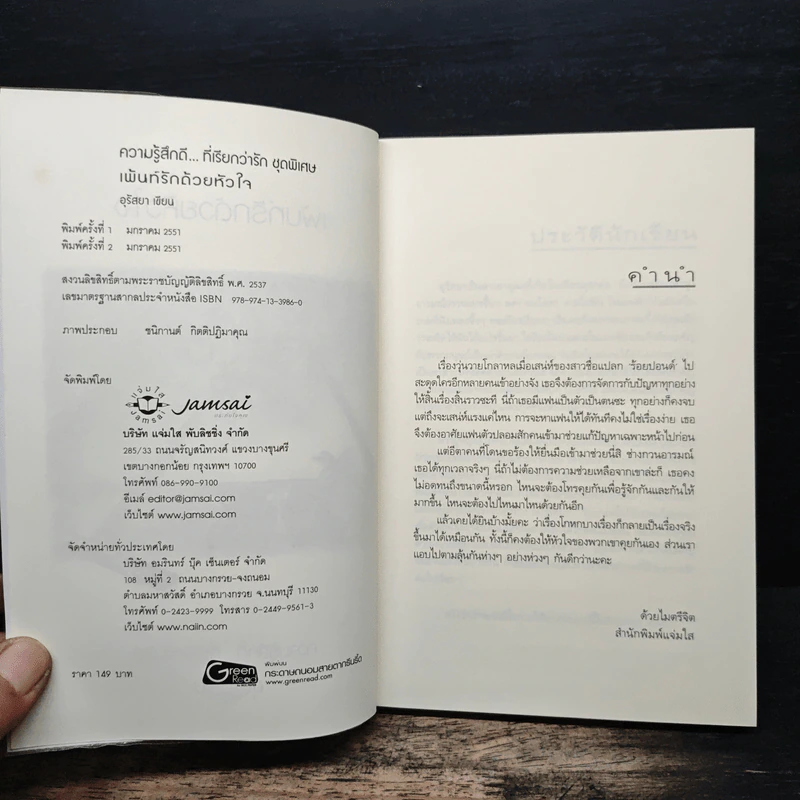 ความรู้สึกดี... ที่เรียกว่ารัก ชุดพิเศษ
เพ้นท์รักด้วยหัวใจ
อุรัสยา เขียน
พิมพ์ครั้งที่ 1 มกราคม 2551
พิมพ์ครั้งที่ 2 มกราคม 2551
สงวนลิขสิทธิ์ตามพระราชบัญญัติลิขสิทธิ์ พ.ศ. 2537
เลขมาตรฐานสากลประจำหนังสือ ISBN 978-974-13-3986-0
ภาพประกอบ ชนิกานต์ กิตติปฏิมาคุณ
จัดพิมพ์โดย
แจ่มใส
JAMSAI
Jamsai
บริษัท แจ่มใส พับลิชชิ่ง จำกัด
285/33 ถนนจรัญสนิทวงศ์ แขวงบางขุนศรี
เขตบางกอกน้อย กรุงเทพฯ 10700
โทรศัพท์ 086-990-9100
อีเมล์ editor@jamsai.com
เว็บไซต์ www.jamsai.com
จัดจำหน่ายทั่วประเทศโดย
บริษัท อมรินทร์ บุ๊ค เซ็นเตอร์ จำกัด
108 หมู่ที่ 2 ถนนบางกรวย-จงถนอม
ตำบลมหาสวัสดิ์ อำเภอบางกรวย จ.นนทบุรี 11130
โทรศัพท์ 0-2423-9999 โทรสาร 0-2449-9561-3
เว็บไซต์ www.naiin.com
ราคา 149 บาท
Green
Read
พิมพ์บน
กระดาษถนอมสายตากรีนรี้ด
www.greenread.com
คำนำ
เรื่องวุ่นวายโกลาหลเมื่อเสน่ห์ของสาวชื่อแปลก 'ร้อยปอนด์' ไป
สะดุดใครอีกหลายคนเข้าอย่างจัง เธอจึงต้องการจัดการกับปัญหาทุกอย่าง
ให้สิ้นเรื่องสิ้นราวซะที นี่ถ้าเธอมีแฟนเป็นตัวเป็นตนซะ ทุกอย่างก็คงจบ
แต่ถึงจะเสน่ห์แรงแค่ไหน การจะหาแฟนให้ได้ทันทีคงไม่ใช่เรื่องง่าย เธอ
จึงต้องอาศัยแฟนตัวปลอมสักคนเข้ามาช่วยแก้ปัญหาเฉพาะหน้าไปก่อน
แต่อีตาคนที่โดนขอร้องให้ยื่นมือเข้ามาช่วยนี่สิ ช่างกวนอารมณ์
เธอได้ทุกเวลาจริงๆ นี่ถ้าไม่ต้องการความช่วยเหลือจากเขาล่ะก็ เธอคง
ไม่อดทนถึงขนาดนี้หรอก ไหนจะต้องโทรคุยกันเพื่อรู้จักกันและกันให้
มากขึ้น ไหนจะต้องไปไหนมาไหนด้วยกันอีก
แล้วเคยได้ยินบ้างมั้ยคะ ว่าเรื่องโกหกบางเรื่องก็กลายเป็นเรื่องจริง
ขึ้นมาได้เหมือนกัน ทั้งนี้ก็คงต้องให้หัวใจของพวกเขาคุยกันเอง ส่วนเรา
แอบไปตามลุ้นกันห่างๆ อย่างห่วงๆ กันดีกว่านะคะ
ด้วยไมตรีจิต
สำนักพิมพ์แจ่มใส